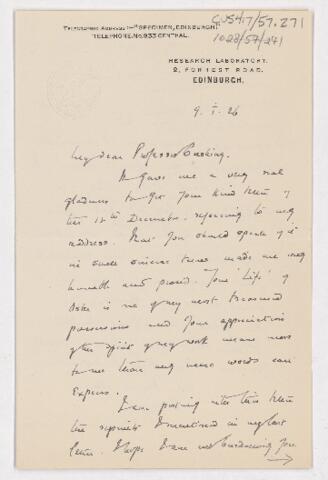 TELEGRAPHIC ADDRESS:—"SPECIMEN, EDINBURGH."
TELEPHONE, No. 833 CENTRAL.
GUS4/7/57.271
1028/57/271
RESEARCH LABORATORY,
2, FORREST ROAD,
EDINBURGH.
9. I. 26
My dear Professor Cushing,
It gave me a very real
gladness to get your kind letter of
the 18th December, referring to my
address. That you should speak of it
in such sincere terms made me very
humble and proud. Your 'Life' of
Osler is one of my most treasured
possessions and your appreciation
of the spirit of my work means more
to me than my mere words can
express.
I am posting with this letter
the reprints I mentioned in my last
letter. I hope I am not burdening you